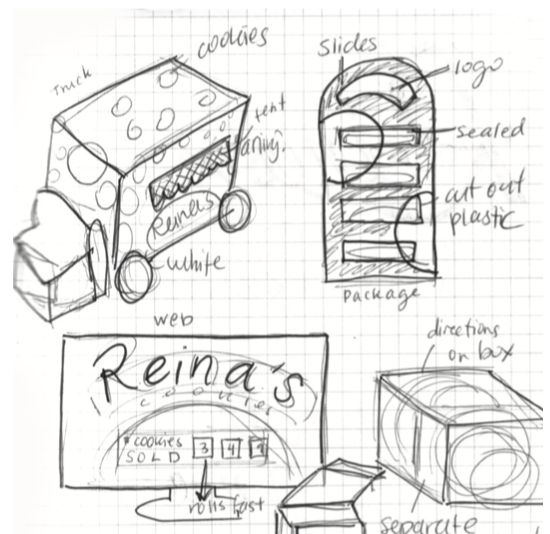 cookies
Truck
tent
Reinas
white
slides
logo
sealed
cut out
plastic
Package
web
Reina's
cookies
* cookies
SOLD
3 4 9
rolls fast
directions
on box
separate